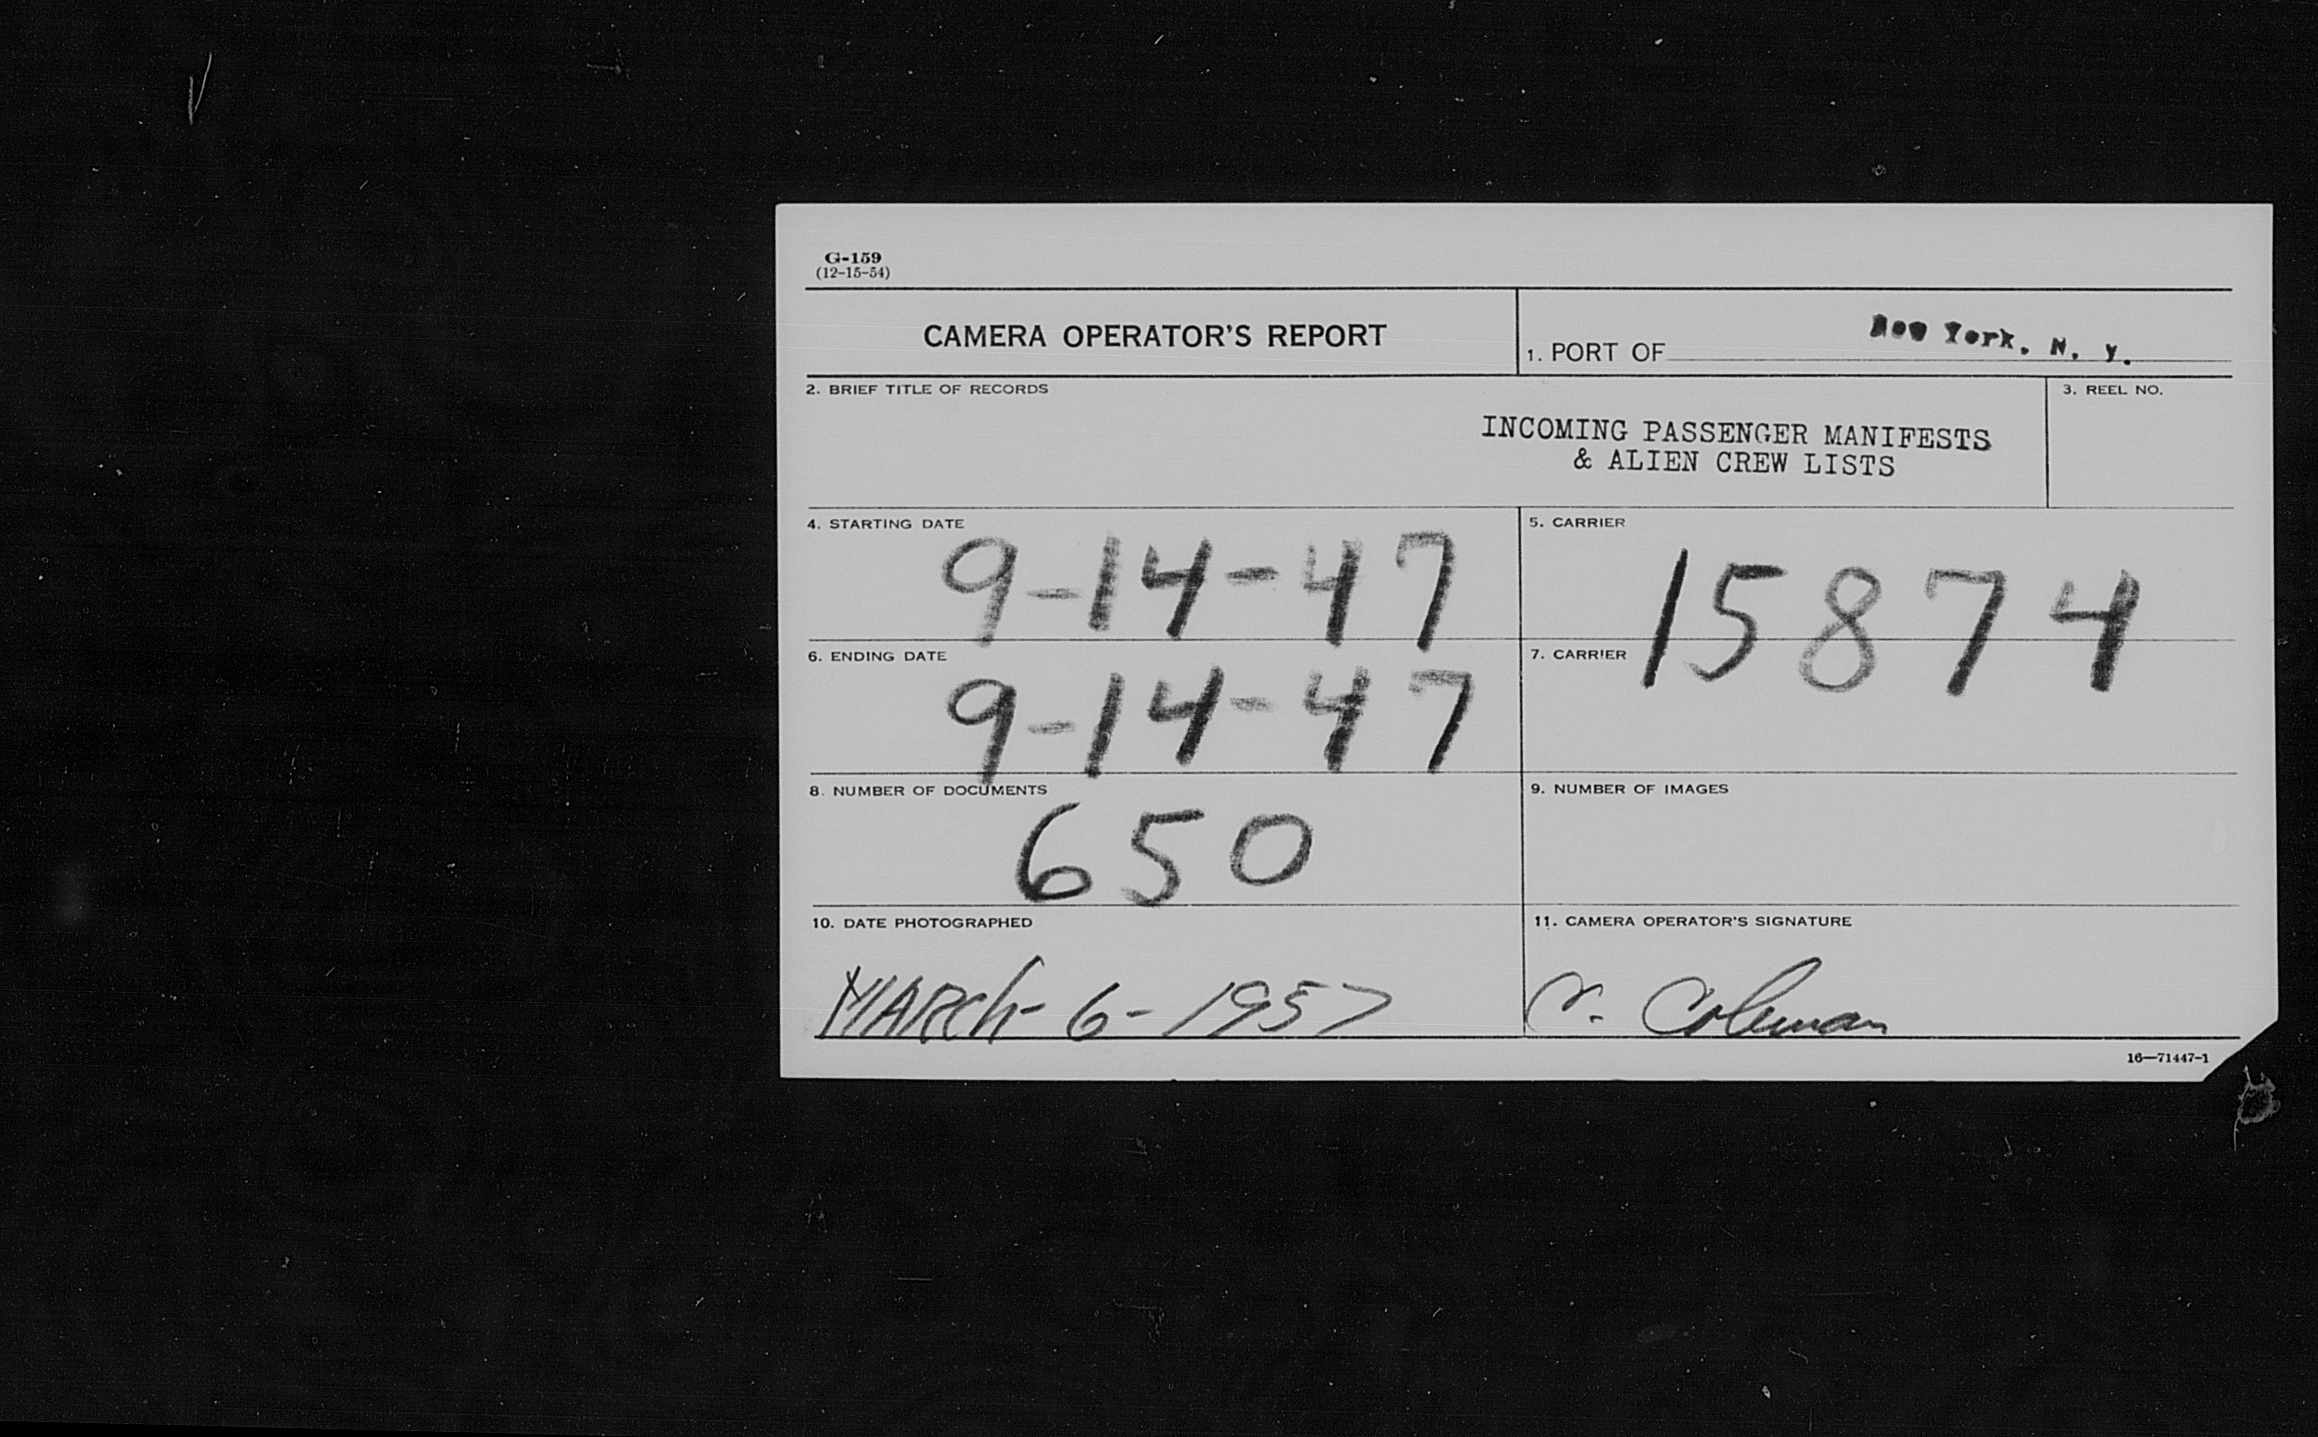 G-159
(12-15-54)
CAMERA OPERATOR'S REPORT
1. PORT OF New York, N. Y.
2. BRIEF TITLE OF RECORDS
INCOMING PASSENGER MANIFESTS
& ALIEN CREW LISTS
3. REEL NO.
4. STARTING DATE
9-14-47
5. CARRIER
15874
6. ENDING DATE
9-14-47
7. CARRIER
8. NUMBER OF DOCUMENTS
650
9. NUMBER OF IMAGES
10. DATE PHOTOGRAPHED
MARCH-6-1957
11. CAMERA OPERATOR'S SIGNATURE
Coleman
16—71447-1